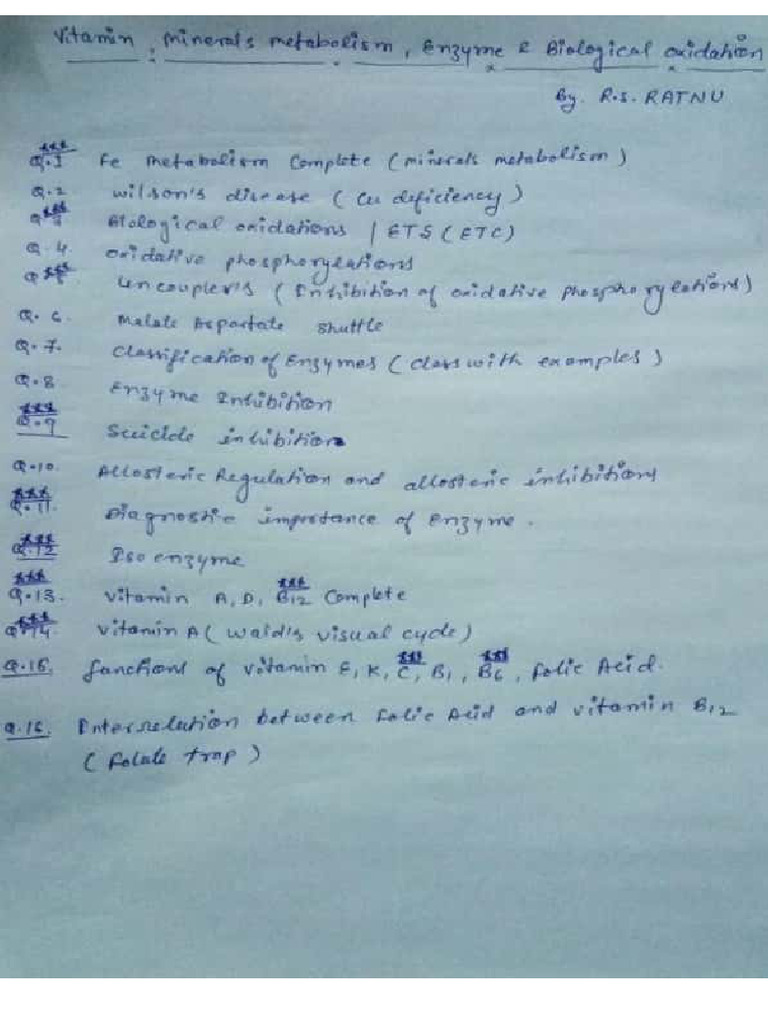 Vitamin, Minerals metabolism, Enzyme & Biological oxidation
By. R.S. RATNU
*** Q.1 Fe metabolism Complete (minerals metabolism)
Q.2 Wilson's disease (Cu deficiency)
Q.3 *** Biological oxidations / ETS (ETC)
Q.4. Oxidative phosphorylations
Q.5 *** Uncoupler's (Inhibition of oxidative phosphorylations)
Q.6. Malate Aspartate Shuttle
Q.7. Classification of Enzymes (Class with examples)
Q.8 Enzyme Inhibition
*** Q.9 Suicide inhibition
Q.10. Allosteric Regulation and allosteric inhibitions
*** Q.11. Diagnostic importance of Enzyme.
*** Q.12 Iso enzyme
*** Q.13. Vitamin A, D, *** B12 Complete
*** Q.14. Vitamin A (Wald's visual cycle)
Q.15. functions of vitamin E, K, *** C, B1, *** B6, Folic Acid.
Q.16. Interrelation between Folic Acid and vitamin B12
(Folate trap)